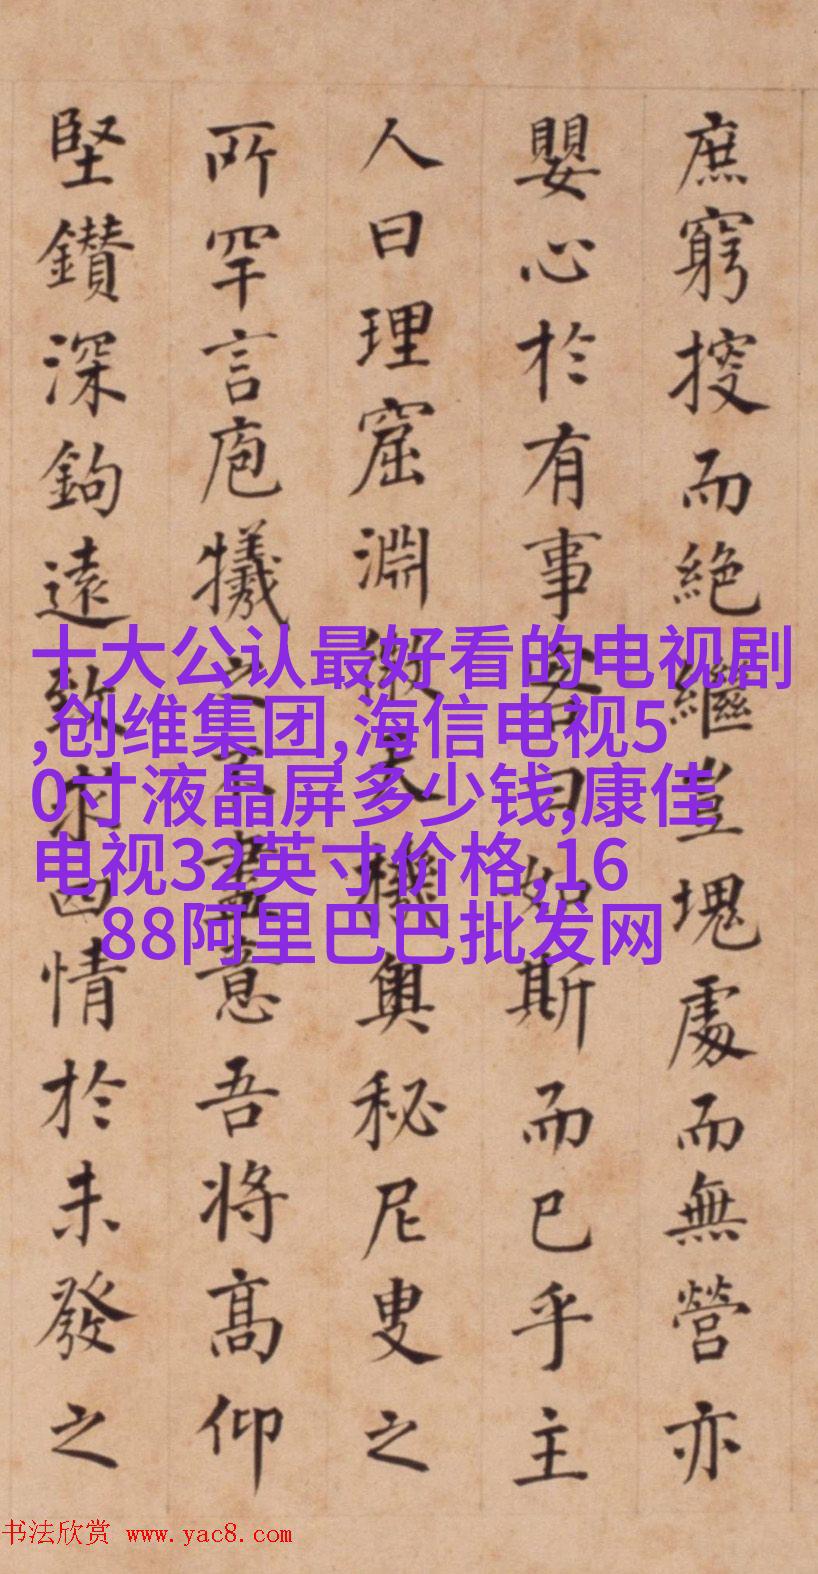 庶窮搜而絶繼豈塊處而無營亦
嬰心於有事客曰如斯而已乎主
人曰理窟淵微天機奧秘尼叟之
所罕言庖犧之不盡意吾将高仰
堅鑽深鉤遠致求四情於未發之
十大公认最好看的电视剧
,创维集团,海信电视5
0寸液晶屏多少钱,康佳
电视32英寸价格,16
88阿里巴巴批发网
书法欣赏 www.yac8.com